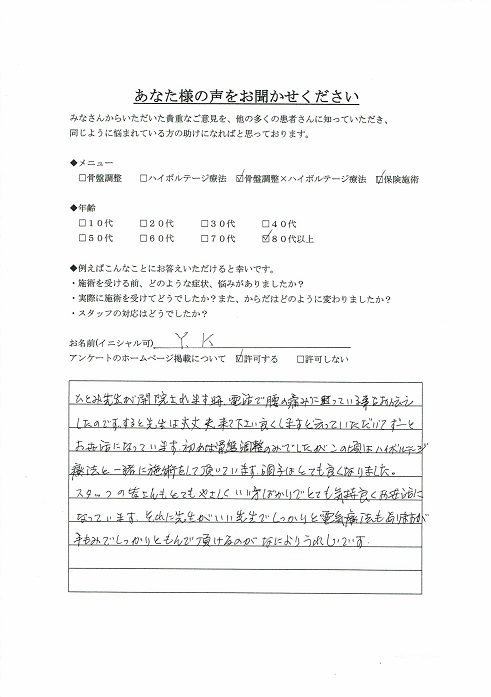 あなた様の声をお聞かせください
みなさんからいただいた貴重なご意見を、他の多くの患者さんに知っていただき、
同じように悩まれている方の助けになればと思っております。
◆メニュー
□骨盤調整 □ハイボルテージ療法 ☑骨盤調整×ハイボルテージ療法 ☑保険施術
◆年齢
□10代 □20代 □30代 □40代
□50代 □60代 □70代 ☑80代以上
◆例えばこんなことにお答えいただけると幸いです。
・施術を受ける前、どのような症状、悩みがありましたか?
・実際に施術を受けてどうでしたか?また、からだはどのように変わりましたか?
・スタッフの対応はどうでしたか?
お名前(イニシャル可) Y. K
アンケートのホームページ掲載について ☑許可する □許可しない
ひとみ先生が開院されます時、電話で腰の痛みに困っている事をお伝え
したのです。すると先生は大丈夫来て下さい良くしますと言っていただいてずーと
お世話になっています。初めは骨盤調整のみでしたがこの頃はハイボルテージ
療法と一緒に施術をして頂いています。調子はとても良くなりました。
スタッフの皆さんもとてもやさしくいい方ばかりでとても気持良くお世話に
なっています。それに先生がいい先生でしっかりと電気療法も
手もみでしっかりともんで頂けるのがなによりうれしいです。